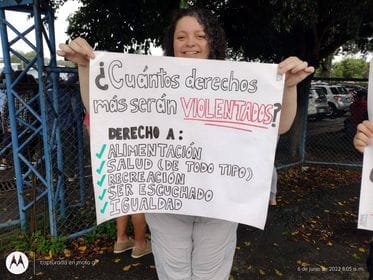 ¿Cuántos derechos
más serán VIOLENTADOS?
DERECHO A:
✓ ALIMENTACIÓN
✓ SALUD (DE TODO TIPO)
✓ RECREACIÓN
✓ SER ESCUCHADO
✓ IGUALDAD
capturada en moto g
6 de junio de 2022 8:05 a.m.